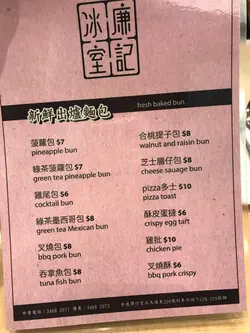 廉記
冰室
新鮮出爐麵包
fresh baked bun
菠蘿包 $7
pineapple bun
綠茶菠蘿包 $7
green tea pineapple bun
雞尾包 $6
cocktail bun
綠茶墨西哥包 $8
green tea Mexican bun
叉燒包 $8
bbq pork bun
吞拿魚包 $8
tuna fish bun
合桃提子包 $8
walnut and raisin bun
芝士腸仔包 $8
cheese sauage bun
pizza多士 $10
pizza toast
酥皮蛋撻 $6
crispy egg taft
雞批 $10
chicken pie
叉燒酥 $6
bbq pork crispy